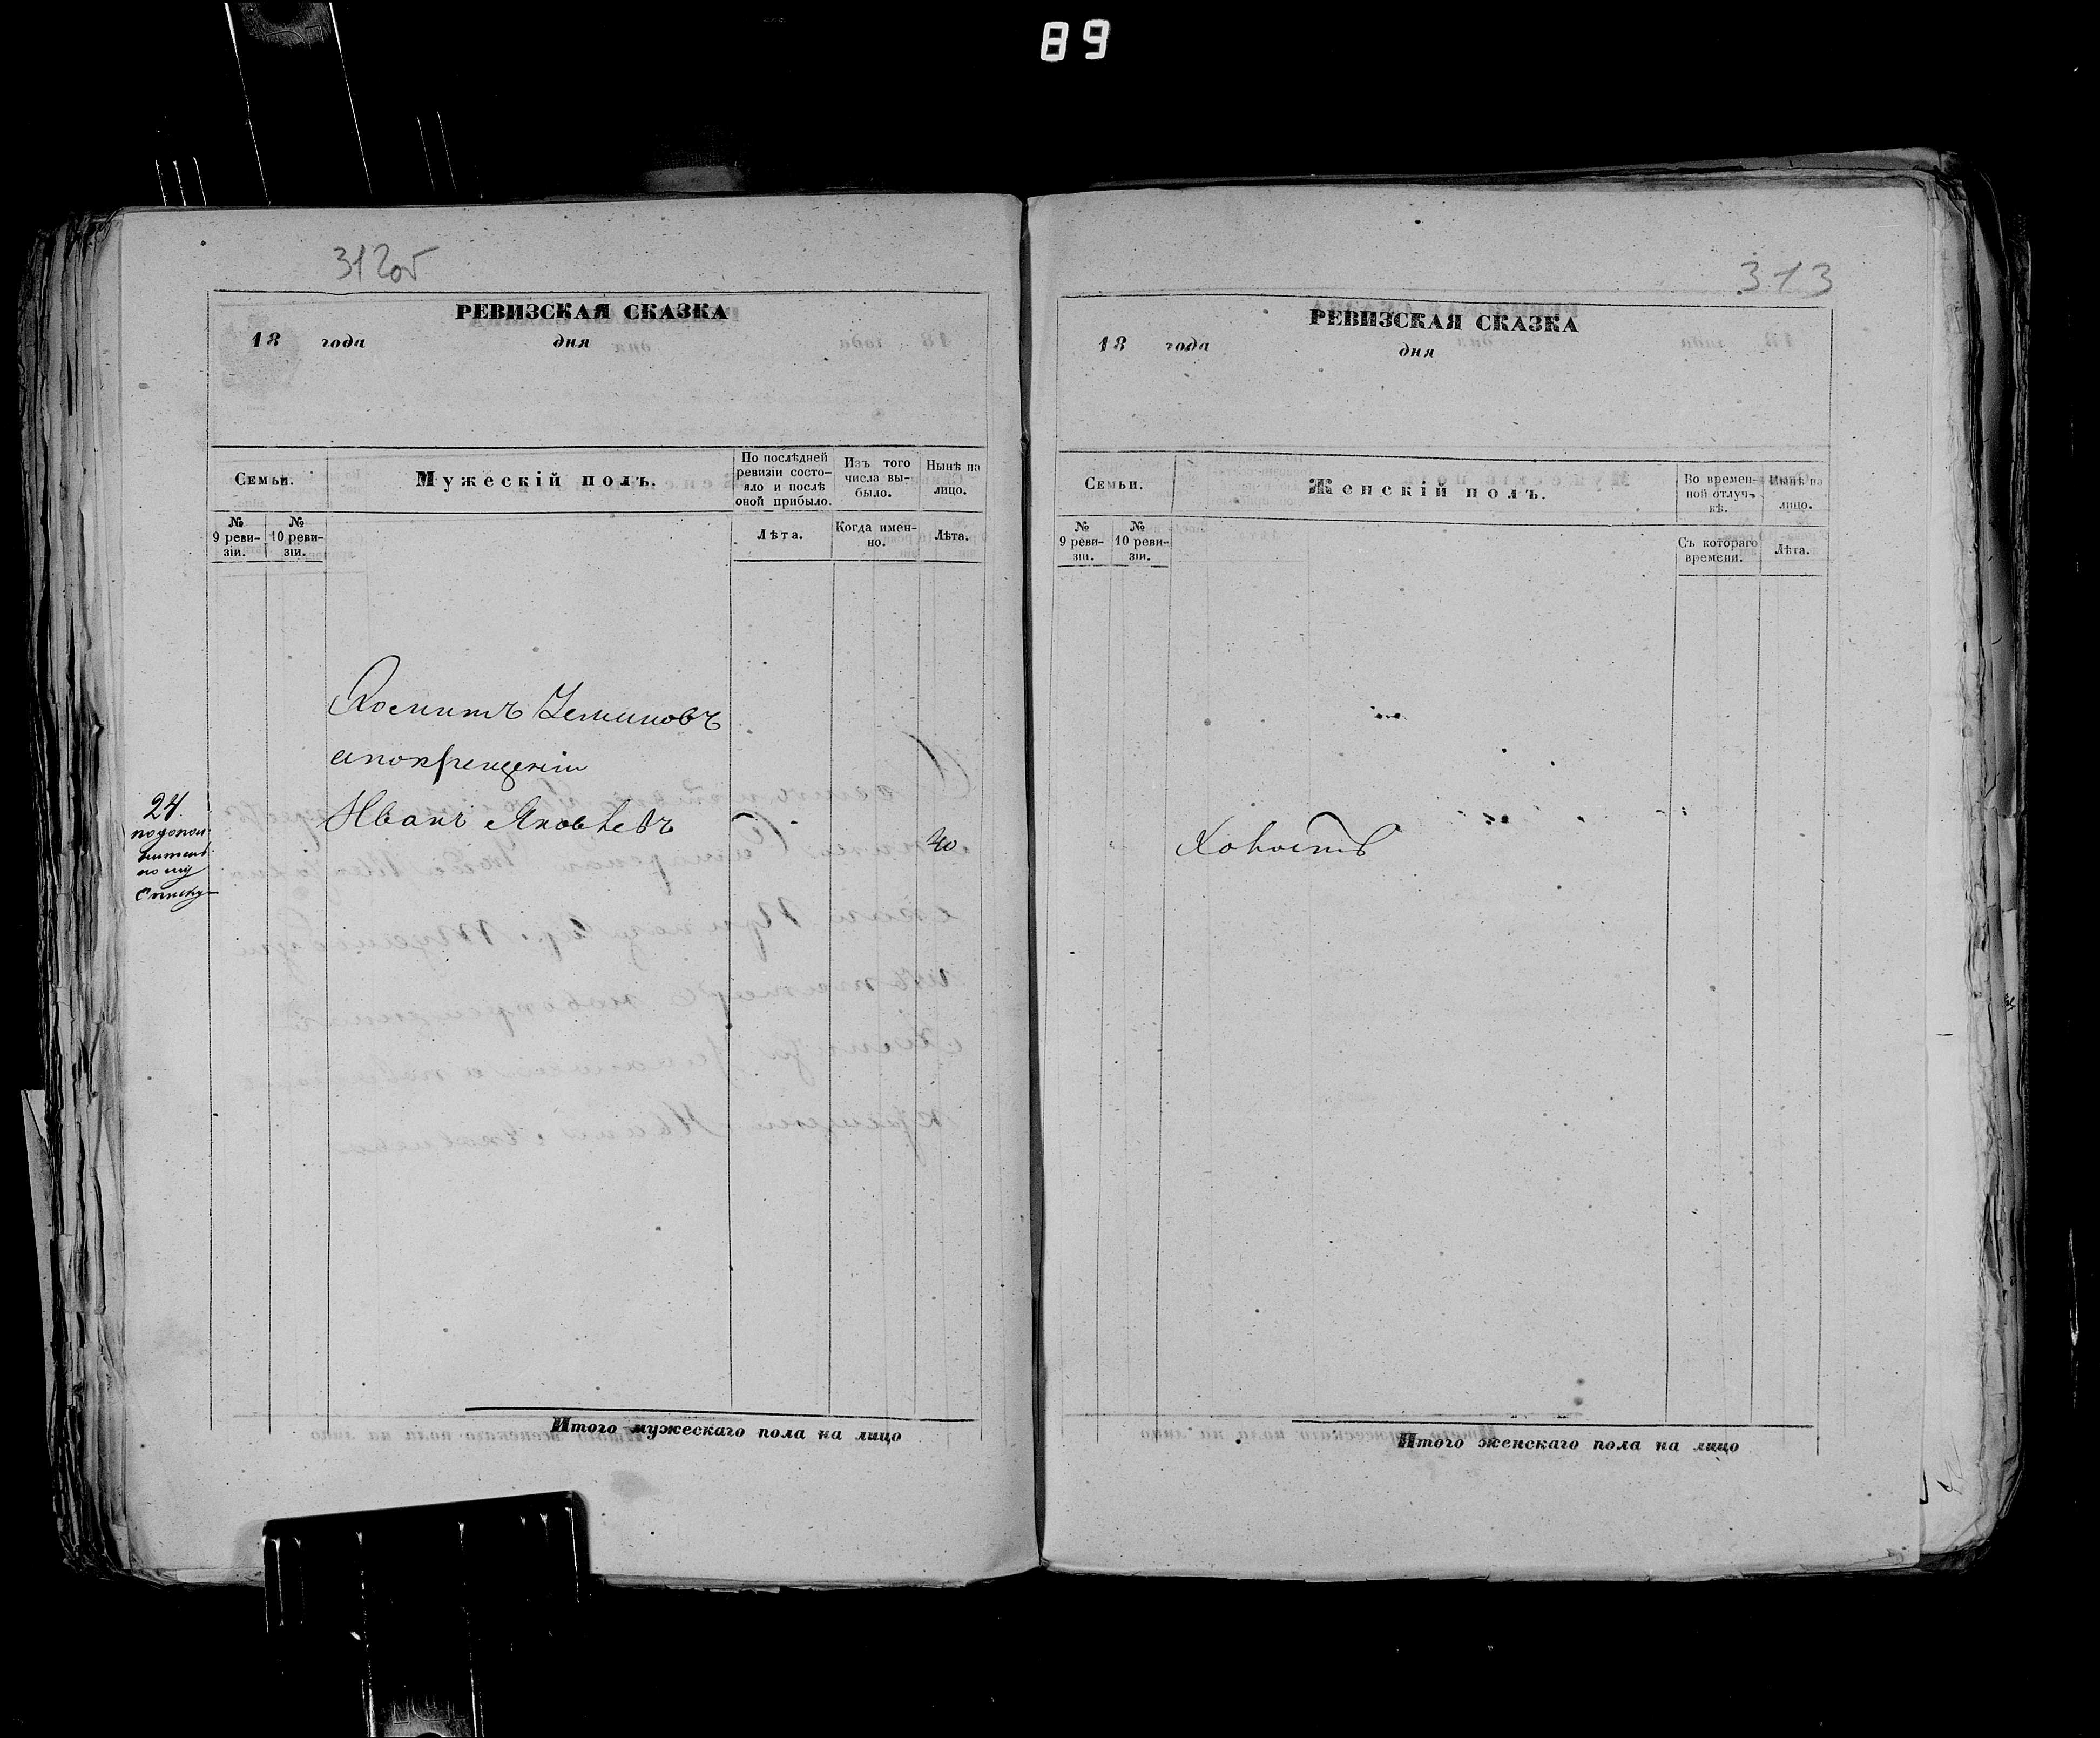 89
312об
РЕВИЗСКАЯ СКАЗКА
18 года дня
Семьи.
Мужескій полъ.
По послѣдней ревизіи состояло и послѣ оной прибыло.
Изъ того числа выбыло.
Нынѣ на лицо.
№ 9 ревизіи.
№ 10 ревизіи.
Лѣта.
Когда именно.
Лѣта.
апокрещеніи
Иванъ Яковлевъ
40
24
подополнительному
списку
Итого мужескаго пола на лицо
313
РЕВИЗСКАЯ СКАЗКА
18 года дня
Семьи.
Женскій полъ.
Во временной отлучкѣ.
Нынѣ на лицо.
№ 9 ревизіи.
№ 10 ревизіи.
Съ котораго времени.
Лѣта.
Холостъ
Итого женскаго пола на лицо